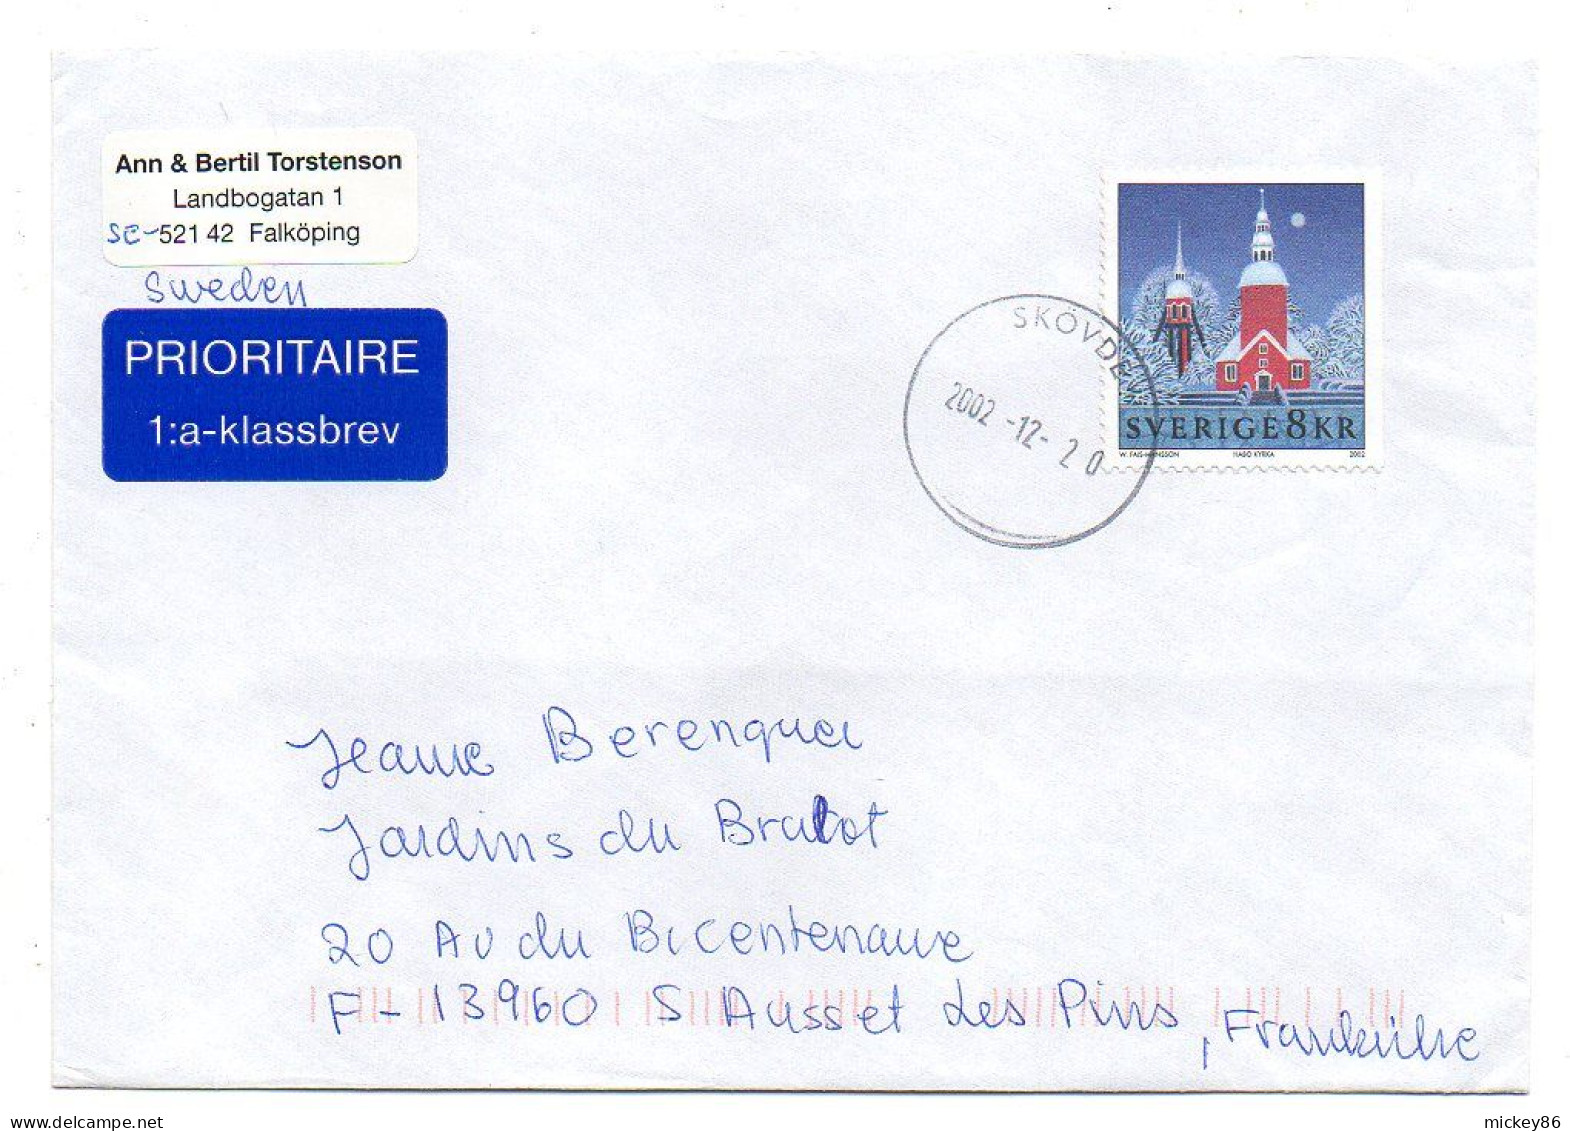 Ann & Bertil Torstenson
Landbogatan 1
SE-521 42 Falköping
Sweden
PRIORITAIRE
1:a-klassbrev
SKÖVDE
2002-12-20
SVERIGE 8KR
HABO KYRKA
2002
Jeanne Berenquer
Jardins du Brulot
20 Av du Bicentenaire
F-13960 S Ausset Les Pins, Frankrike
mickey86